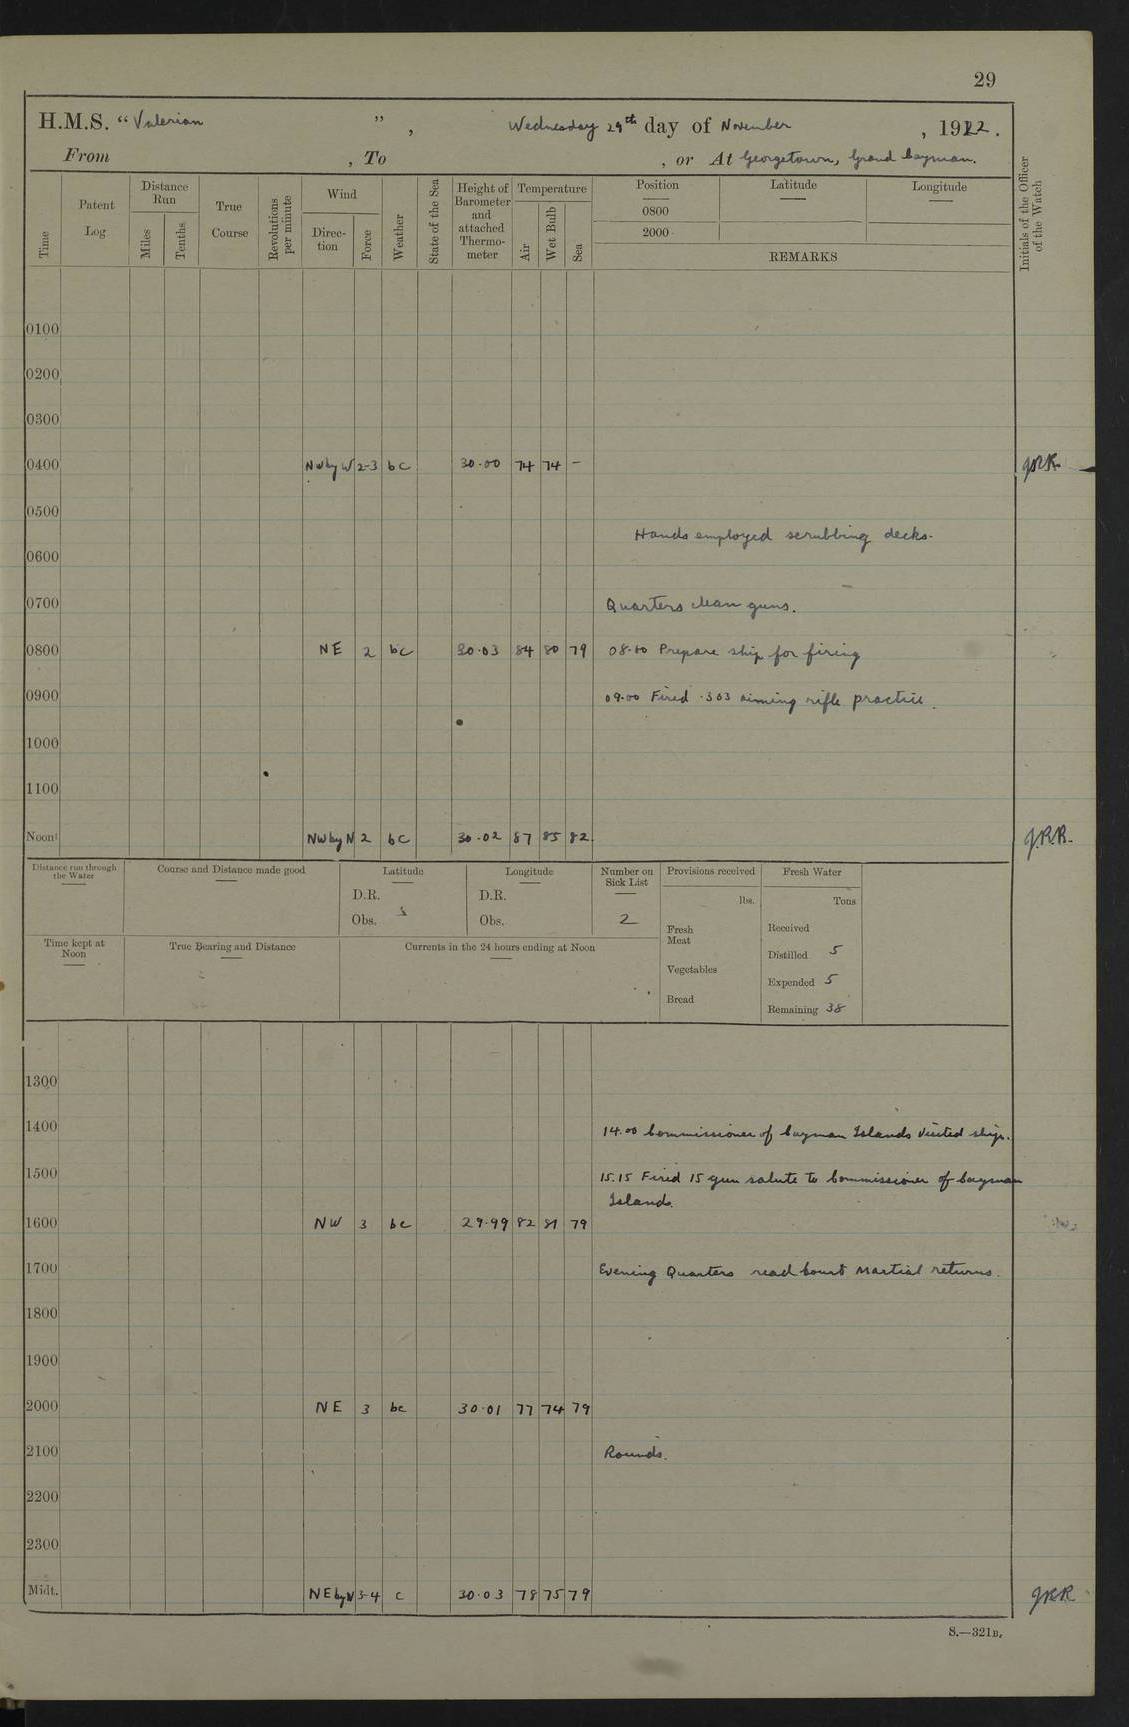 29
H.M.S. “Valerian ” , Wednesday 29th day of November , 1922.
From , To , or At Georgetown, Grand Cayman.
Time
Patent Log
Distance Run
Miles
Tenths
True Course
Revolutions per minute
Wind
Direction
Force
Weather
State of the Sea
Height of Barometer and attached Thermometer
Temperature
Air
Wet Bulb
Sea
Position
0800
2000
Latitude
Longitude
REMARKS
Initials of the Officer of the Watch
0100
0200
0300
0400 NW by W 2-3 bc 30.00 74 74 – JRR
0500
Hands employed scrubbing decks.
0600
0700 Quarters clean guns.
0800 NE 2 bc 30.03 84 80 79 08.00 Prepare ship for firing
0900 09.00 Fired .303 aiming rifle practice.
1000
1100
Noon NW by N 2 bc 30.02 87 85 82 J.R.R.
Distance run through the Water
Course and Distance made good
Latitude
D.R.
Obs.
Longitude
D.R.
Obs.
Number on Sick List
2
Provisions received
lbs.
Fresh Meat
Vegetables
Bread
Fresh Water
Tons
Received
Distilled 5
Expended 5
Remaining 38
Time kept at Noon
True Bearing and Distance
Currents in the 24 hours ending at Noon
1300
1400 14.00 Commissioner of Cayman Islands visited ship.
1500 15.15 Fired 15 gun salute to Commissioner of Cayman
Islands.
1600 NW 3 bc 29.99 82 81 79
1700 Evening Quarters read Court Martial returns.
1800
1900
2000 NE 3 bc 30.01 77 74 79
2100 Rounds.
2200
2300
Midt. NE by N 3-4 c 30.03 78 75 79 JRR
S.—321B.